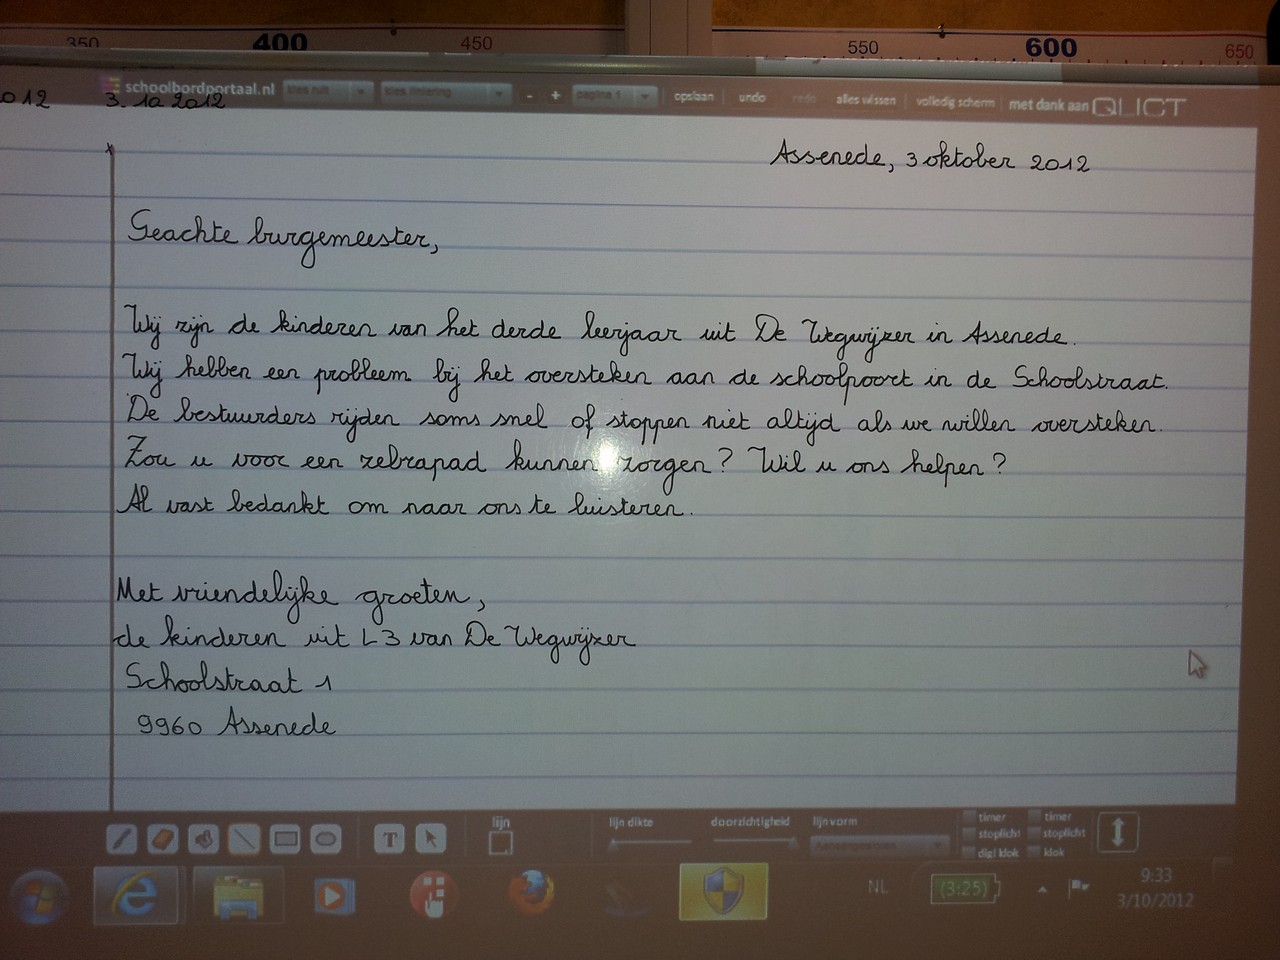 350 400 450 550 600 650
schoolbordportaal.nl kies ruit kies liniering - + pagina 1 opslaan undo redo alles wissen volledig scherm met dank aan QLICT
012 3.10 2012
Assenede, 3 oktober 2012
Geachte burgemeester,
Wij zijn de kinderen van het derde leerjaar uit De Wegwijzer in Assenede.
Wij hebben een probleem bij het oversteken aan de schoolpoort in de Schoolstraat.
De bestuurders rijden soms snel of stoppen niet altijd als we willen oversteken.
Zou u voor een zebrapad kunnen zorgen? Wil u ons helpen?
Al vast bedankt om naar ons te luisteren.
Met vriendelijke groeten,
de kinderen uit L3 van De Wegwijzer
Schoolstraat 1
9960 Assenede
lijn lijn dikte doorzichtigheid lijnvorm timer timer
stoplicht stoplicht
T digi klok klok
NL (3:25) 9:33
3/10/2012